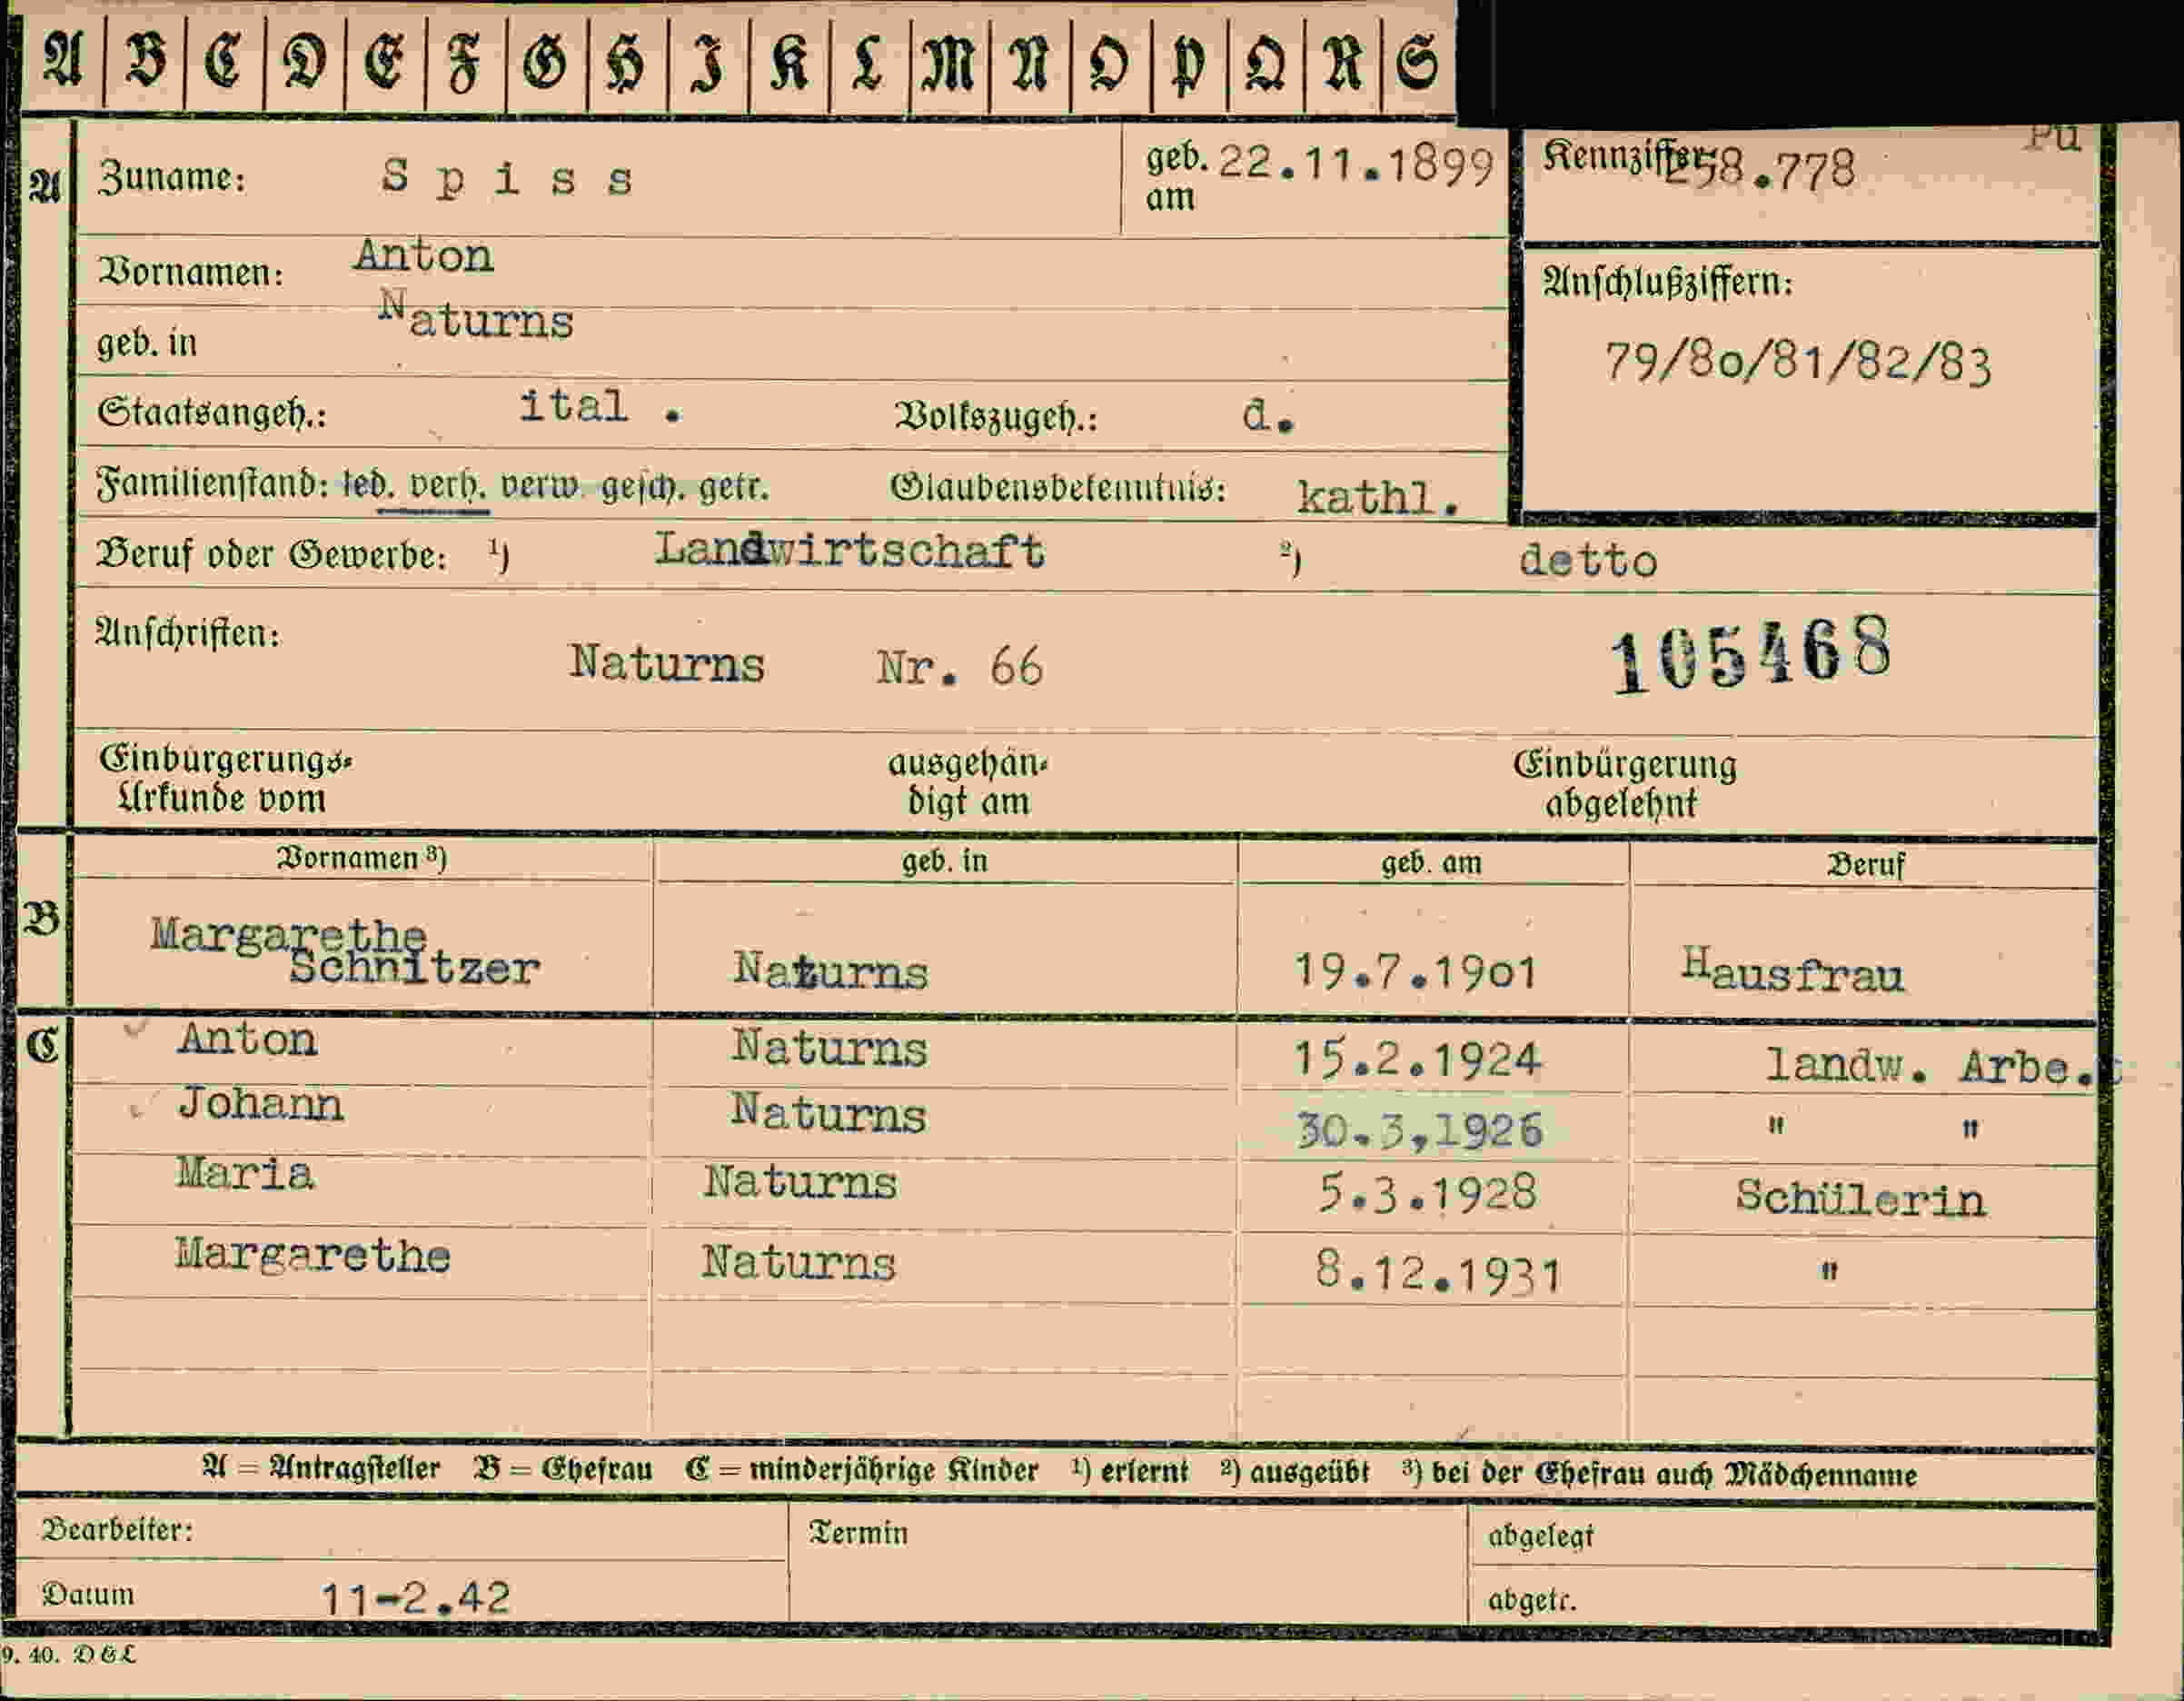 A B C D E F G H I K L M N O P Q R S
A Zuname: Spiss geb. am 22.11.1899 Kennziffer: 258.778 Pu
Vornamen: Anton Anschlußziffern:
geb. in Naturns 79/80/81/82/83
Staatsangeh.: ital . Volkszugeh.: d.
Familienstand: led. verh. verw. gesch. getr. Glaubensbekenntnis: kathl.
Beruf oder Gewerbe: 1) Landwirtschaft 2) detto
Anschriften: Naturns Nr. 66 105468
Einbürgerungs- ausgehän- Einbürgerung
Urkunde vom digt am abgelehnt
Vornamen 3) geb. in geb. am Beruf
B Margarethe
Schnitzer Naturns 19.7.1901 Hausfrau
C Anton Naturns 15.2.1924 landw. Arbe.
Johann Naturns 30.3,1926 " "
Maria Naturns 5.3.1928 Schülerin
Margarethe Naturns 8.12.1931 "
A = Antragsteller B = Ehefrau C = minderjährige Kinder 1) erlernt 2) ausgeübt 3) bei der Ehefrau auch Mädchenname
Bearbeiter: Termin abgelegt
Datum 11-2.42 abgetr.
9. 40. D & L